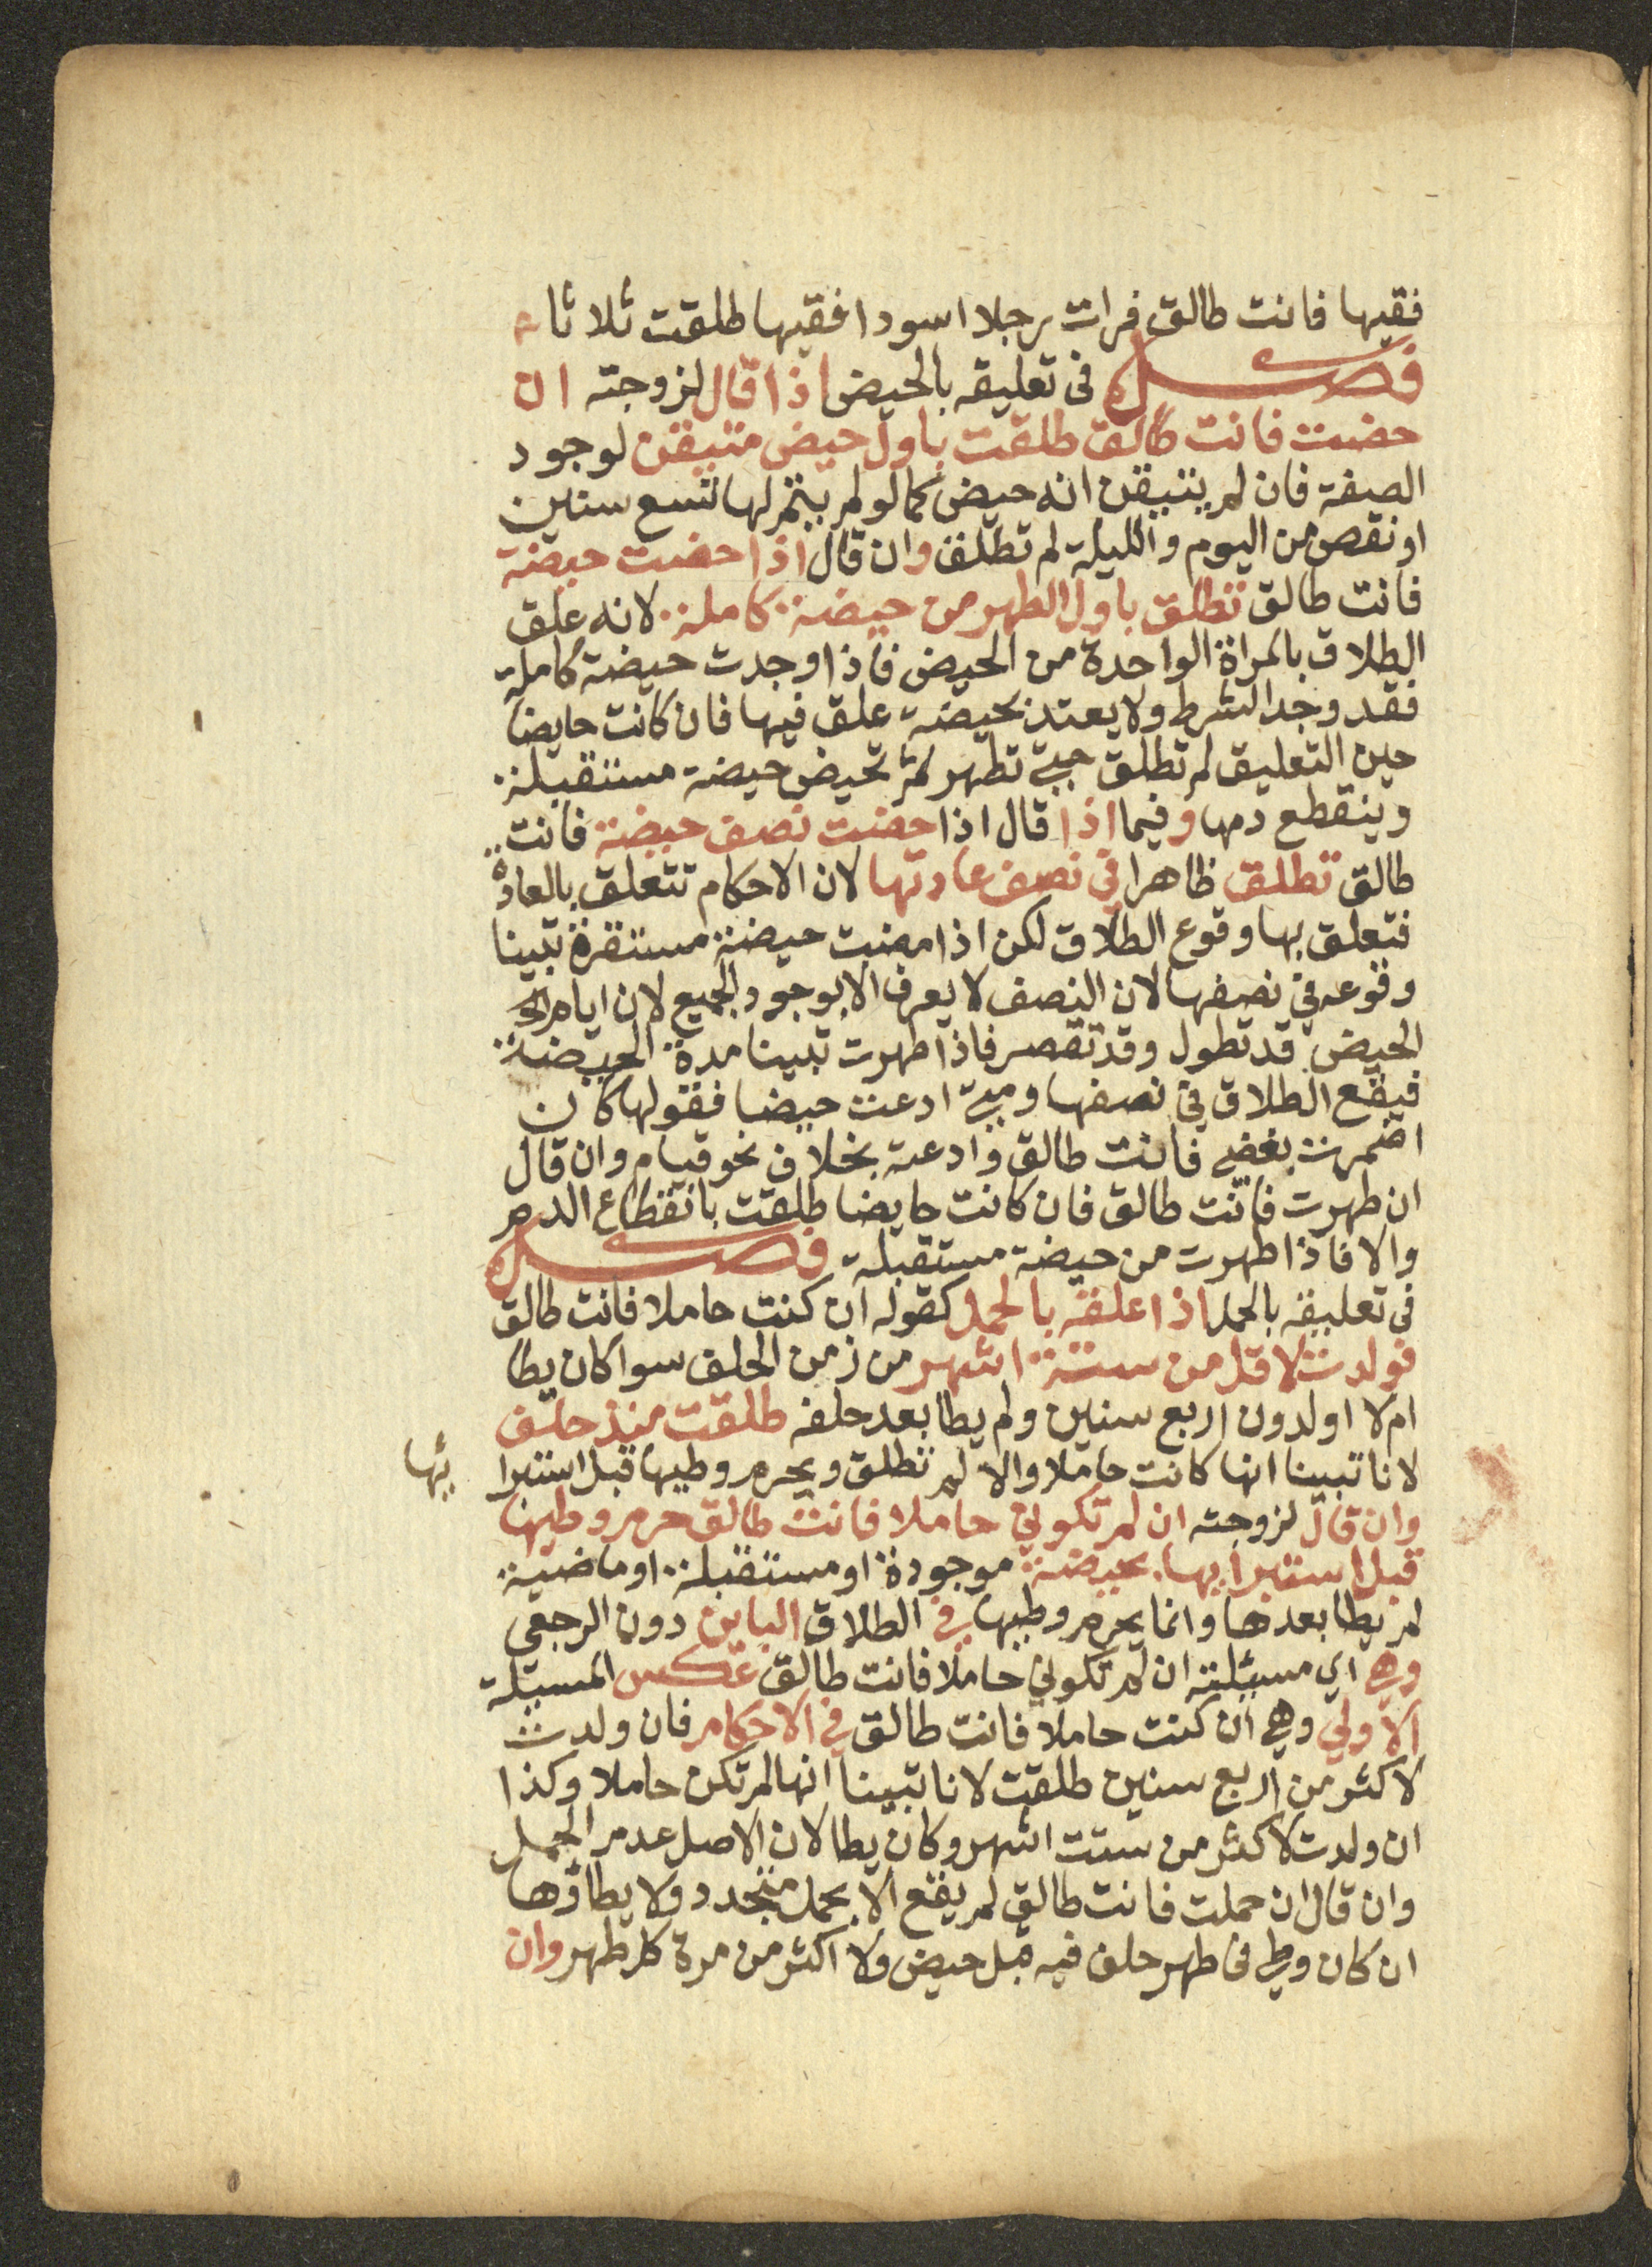 فقيها فانت طالق فرات رجلا اسودا فقيها طلقت ثلاثا
فصل في تعليقه بالحيض اذا قال لزوجته ان
حضت فانت طالق طلقت باول حيض متيقن لوجود
الصفة فان لم يتيقن انه حيض كما لو لم يتم لها تسع سنين
او نقص من اليوم والليلة لم تطلق وان قال اذا حضت حيضة
فانت طالق تطلق باول الطهر من حيضة كاملة لانه علق
الطلاق بالمراة الواحدة من الحيض فاذا وجدت حيضة كاملة
فقد وجد الشرط ولا يعتد بحيضة علق فيها فان كانت حايضا
حين التعليق لم تطلق حتي تطهر ثم تحيض حيضة مستقبلة
وينقطع دمها وفيما اذا قال اذا حضت نصف حيضة فانت
طالق تطلق ظاهرا في نصف عادتها لان الاحكام تتعلق بالعادة
فتعلق بها وقوع الطلاق لكن اذا مضت حيضة مستقرة تبينا
وقوعه في نصفها لان النصف لا يعرف الا بوجود الجميع لان ايام
الحيض قد تطول وقد تقصر فاذا طهرت تبينا مدة الحيضة
فيقع الطلاق في نصفها ومتي ادعت حيضا فقولها كان
اضمرت بغضي فانت طالق وادعته بخلاف نحو قيام وان قال
ان طهرت فانت طالق فان كانت حايضا طلقت بانقطاع الدم
والا فاذا طهرت من حيضة مستقبلة فصل
في تعليقه بالحمل اذا علقه بالحمل كقوله ان كنت حاملا فانت طالق
فولدت لاقل من ستة اشهر من زمن الحلف سوا كان يطا
ام لا او لدون اربع سنين ولم يطا بعد حلفه طلقت منذ حلف
لانا تبينا انها كانت حاملا والا لم تطلق ويحرم وطيها قبل استبرا يها
وان قال لزوجته ان لم تكوني حاملا فانت طالق حرم وطيها
قبل استبرايها بحيضة موجودة او مستقبلة او ماضية
لم يطا بعدها وانما يحرم وطيها في الطلاق الباين دون الرجعي
وهي اي مسئلة ان لم تكوني حاملا فانت طالق عكس المسئلة
الاولي وهي ان كنت حاملا فانت طالق في الاحكام فان ولدت
لاكثر من اربع سنين طلقت لانا تبينا انها لم تكن حاملا وكذا
ان ولدت لاكثر من ستت اشهر وكان يطا لان الاصل عدم الحمل
وان قال ان حملت فانت طالق لم يقع الا بحمل متجدد ولا يطاؤها
ان كان وطي في طهر حلف فيه قبل حيض ولا اكثر من مرة كل طهر وان